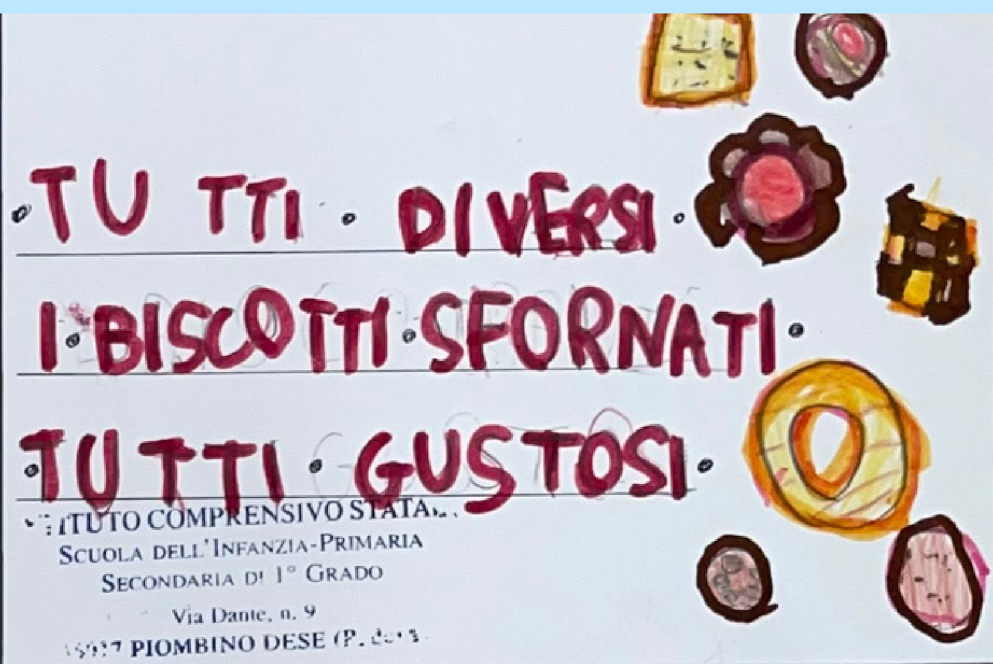 ·TU TTI · DIVERSI·
I·BISCOTTI·SFORNATI·
·TUTTI · GUSTOSI·
ITUTO COMPRENSIVO STATA
SCUOLA DELL'INFANZIA-PRIMARIA
SECONDARIA DI 1° GRADO
Via Dante, n. 9
PIOMBINO DESE (P.